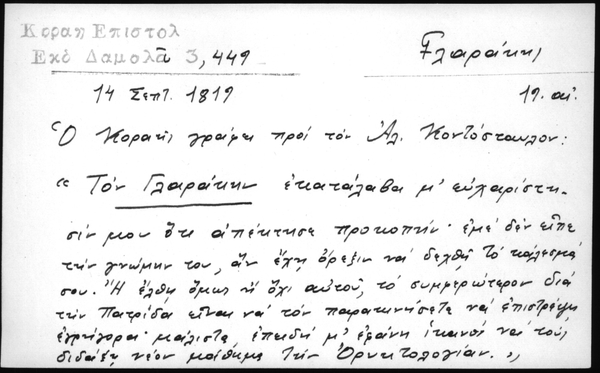 Κοραη Επιστολ
Εκδ Δαμολᾶ 3,449
Γλαράκης
14 Σεπτ. 1819
19. αἰ.
Ὁ Κοραῆς γράφει πρὸς τὸν Ἀλ. Κοντόσταυλον:
« Τὸν Γλαράκην ἐκατάλαβα μ' εὐχαρίστη-
σίν μου ὅτι ἀπέκτησε προκοπήν· ἐμὲ δὲν εἶπε
τὴν γνώμην του, ἂν ἔχῃ ὄρεξιν νὰ δεχθῇ τὸ κάλεσμά
σου. Ἢ ἔλθῃ ὅμως ἢ ὄχι αὐτοῦ, τὸ συμφερώτερον διὰ
τὴν Πατρίδα εἶναι νὰ τὸν παρακινήσετε νὰ ἐπιστρέψῃ
ἐγρήγορα· μάλιστα, ἐπειδὴ μ' ἐφάνη ἱκανὸς νὰ τοὺς
διδάξῃ νέον μάθημα τὴν Ὀρυκτολογίαν. »